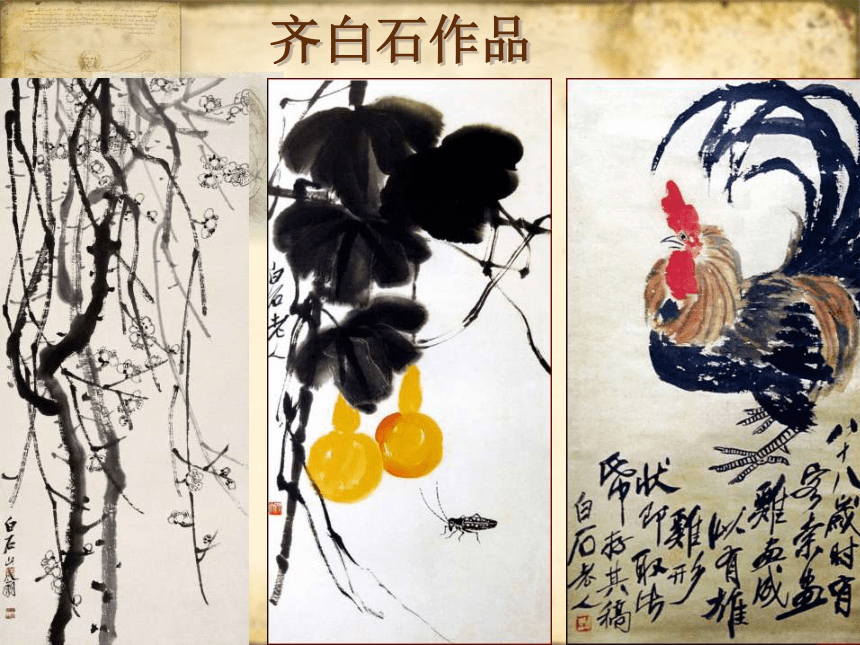 齐白石作品
白石山翁
白石老人
八十八歲时有
客索畫
雞畫成
有雄
雞形
状即取
存其稿
白石老人